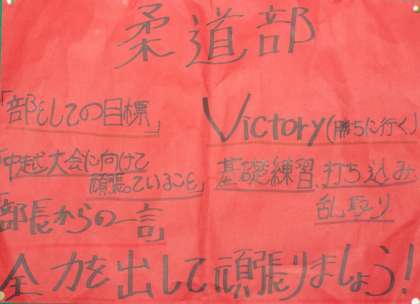 柔道部
「部としての目標」
Victory(勝ちに行く)
「中越大会に向けて
頑張っていること」
基礎練習、打ち込み
乱取り
「部長からの一言」
全力を出して頑張りましょう!